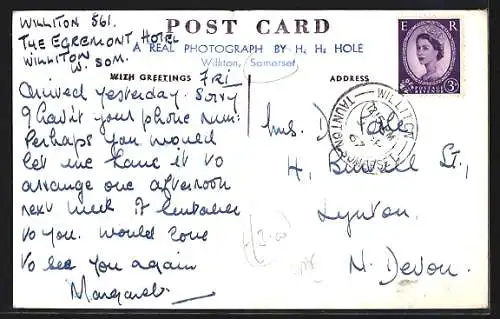 WILLITON 861.
THE EGREMONT HOTEL
WILLITON
W. SOM.
POST CARD
A REAL PHOTOGRAPH BY H. H. HOLE
Williton, Somerset
WITH GREETINGS
ADDRESS
FRI
Arrived yesterday. Sorry
I hav'nt your phone num:
Perhaps you would
let me have it to
arrange one afternoon
next week if
to you. Would love
to see you again
Margaret
Mrs. D.
4, St.,
Lynton.
N. Devon.
E R
3D
POSTAGE
REVENUE
WILLITON
TAUNTON